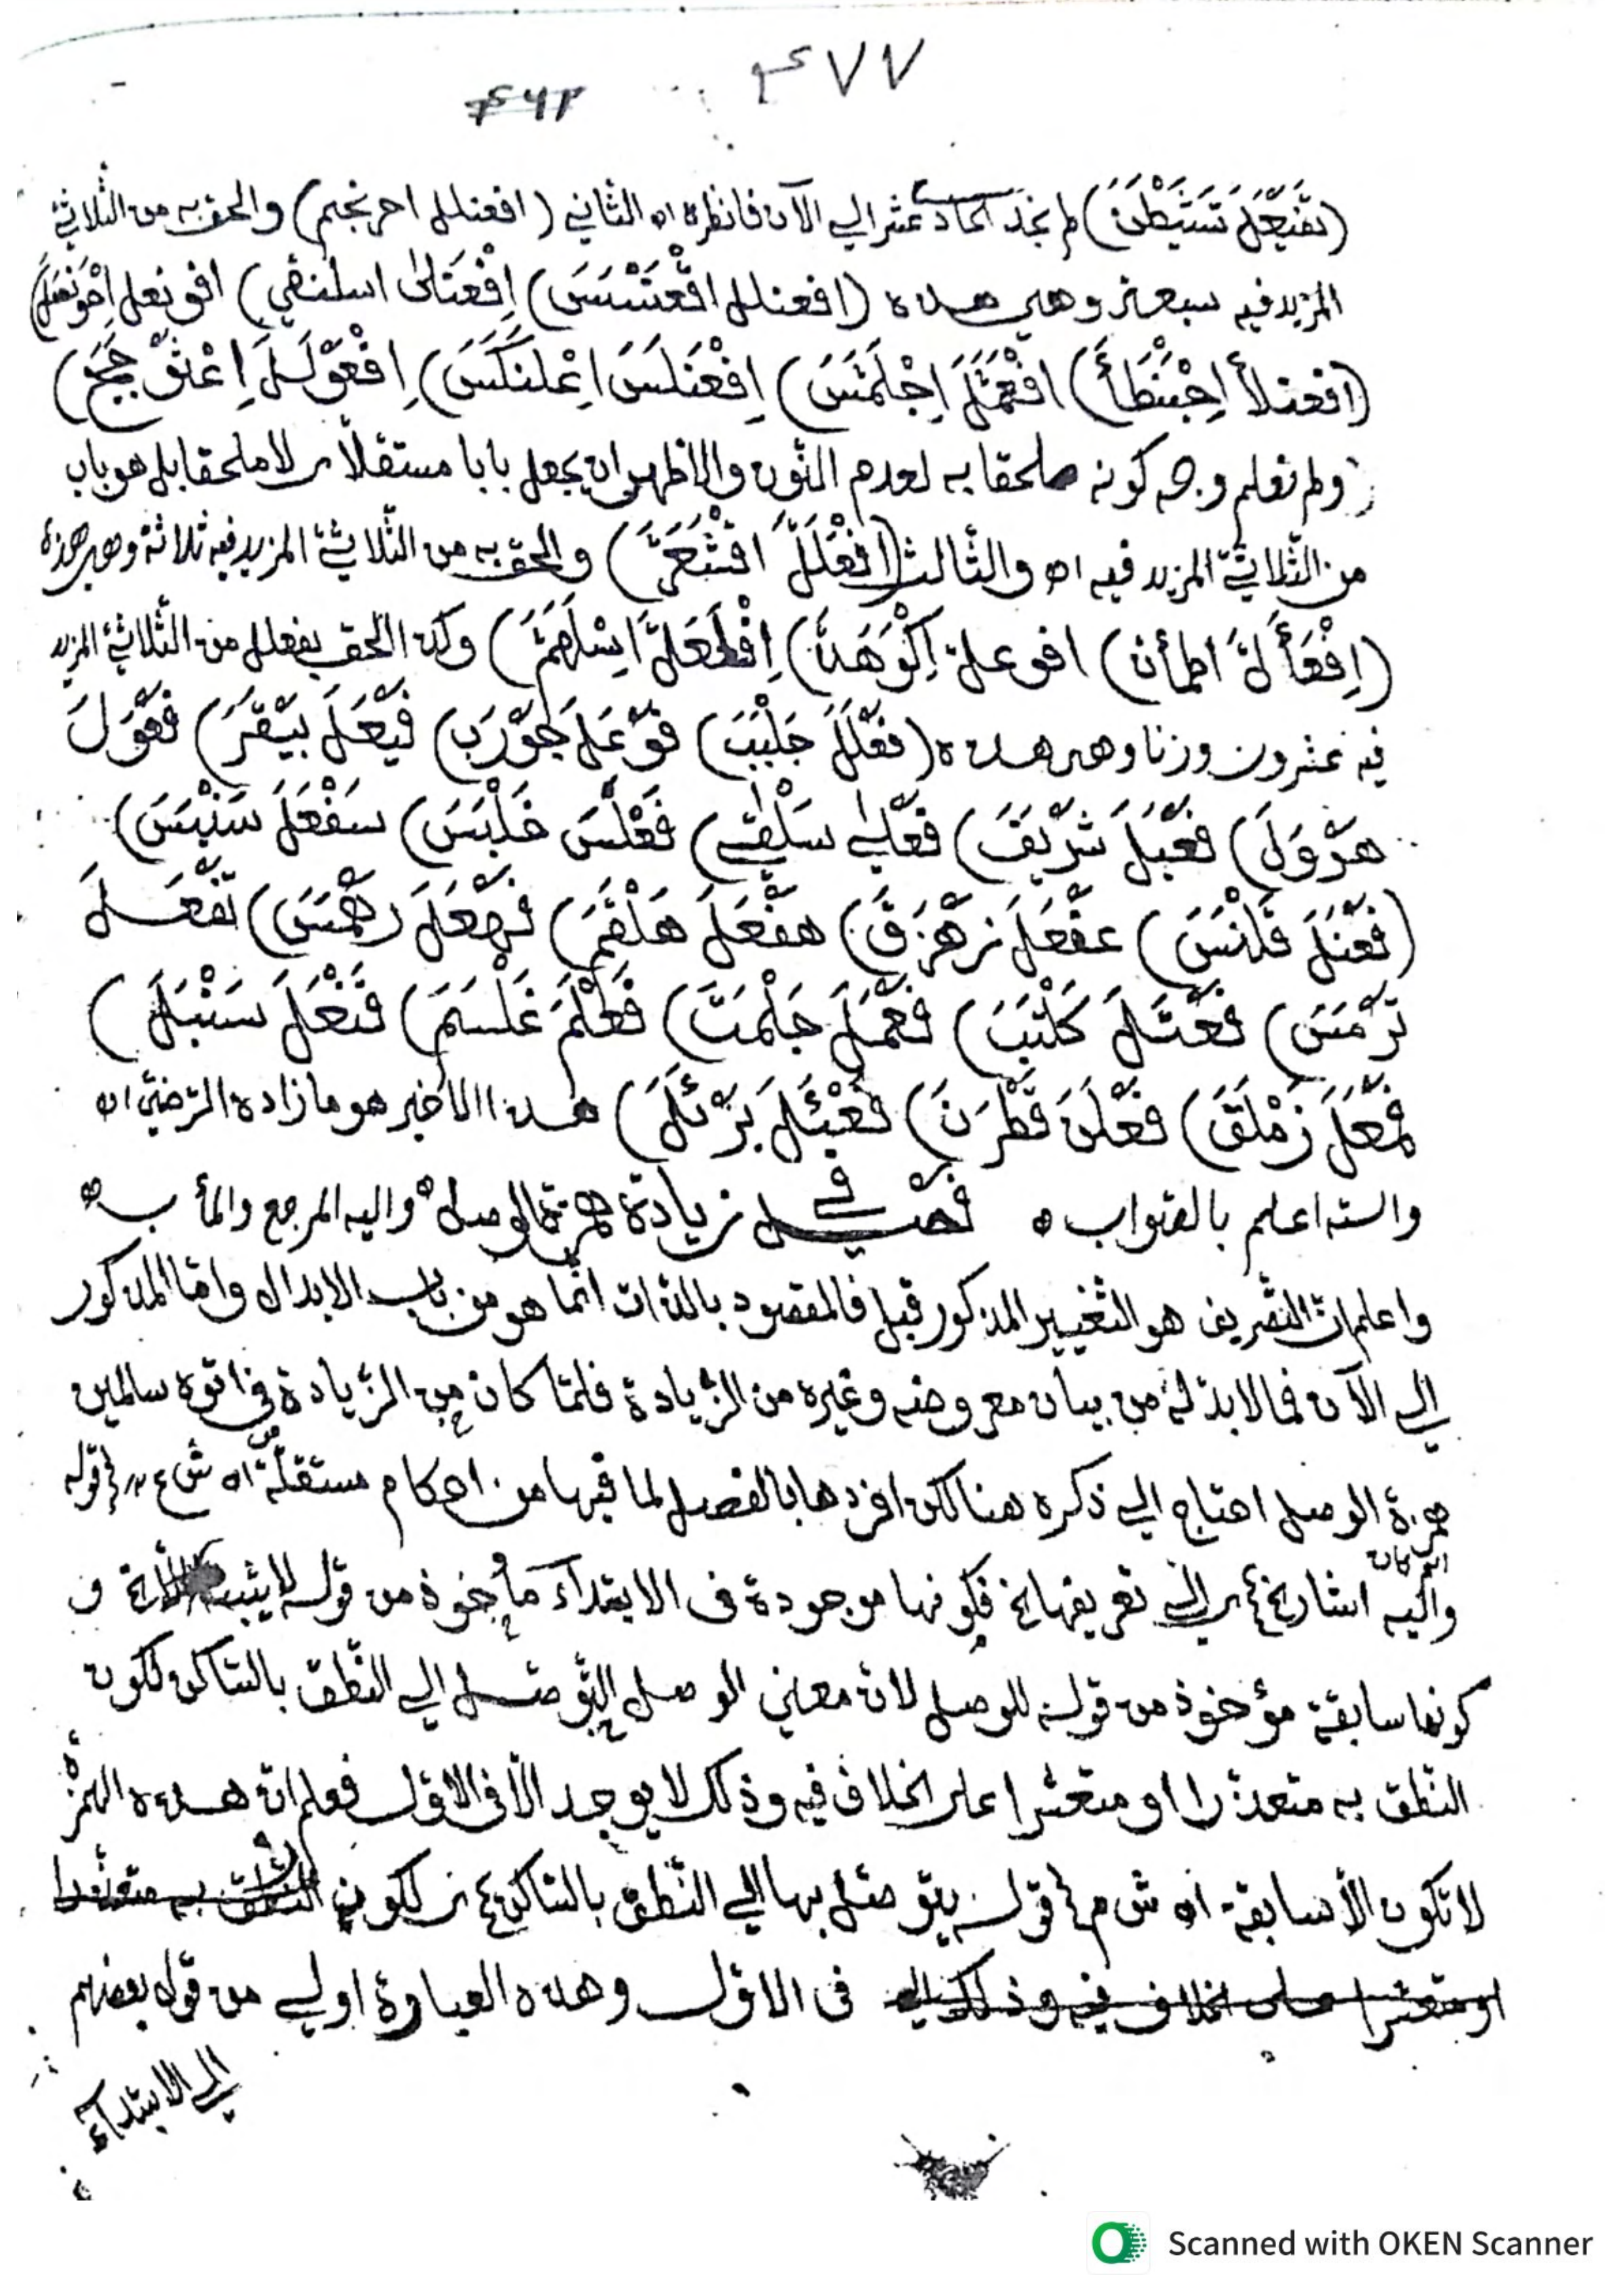 ٤٧٧
(تَفَيْعَلَ تَشَيْطَنَ) لم نجد الحادى عشر الي الآن فانظره اه الثاني (افعنلل احرنجم) والحق به من الثّلاثيّ
المزيد فيه سبعة وهي هذه (افعنلل اقْعَنْسَسَ) اِفْعَنْلىٰ اسلنقي) افونعل اِحْوَنْصَلَ)
(افعنلأ اِحْبَنْطَأَ) افْعَمَّلَ اِجْلَمَّسَ) اِفْعَنْلَسَ اِعْلَنْكَسَ) اِفْعَوْلَلَ اِعْثَوْجَجَ)
ولم نعلم وجه كونه ملحقا به لعدم النّون والاظهر ان يجعل بابا مستقلّا لا ملحقا بل هو باب
من الثّلاثيّ المزيد فيه اه والثّالث (افْعَلَلَّ اقْشَعَرَّ) والحق به من الثّلاثيّ المزيد فيه ثلاثة وهي هذه
(اِفْعَأَلَّ اطمأن) افوعلّ اِكْوَهَدَّ) اِفْلَعَلَّ اِسْلَهَمَّ) وكذا الحق بفعلل من الثّلاثيّ المزيد
فيه عشرون وزنا وهي هذه (فَعْلَلَ جَلْبَبَ) فَوْعَلَ جَوْرَبَ) فَيْعَلَ بَيْقَرَ) فَعْوَلَ
هَرْوَلَ) فَعْيَلَ شَرْيَفَ) فَعْلىٰ سَلْقىٰ) فَعْلَسَ خَلْبَسَ) سَفْعَلَ سَنْبَسَ)
(فَعْنَلَ قَلْنَسَ) عَفْعَلَ زَهْزَقَ) هَفْعَلَ هَلْقَمَ) فَهْعَلَ رَهْمَسَ) تَفْعَلَ
تَرْمَسَ) فَعْتَلَ كَلْتَبَ) فَعْمَلَ جَلْمَتَ) فَعْلَمَ غَلْسَمَ) فَنْعَلَ سَنْبَلَ)
فَمْعَلَ زَمْلَقَ) فَعْلَنَ قَطْرَنَ) فَعْئَلَ بَرْئَلَ) هذا الاخير هو ما زاده الرّضيّ اه
والله اعلم بالصّواب ه فصل في زيادة همزة الوصل ه واليه المرجع والمأب ه
واعلم انّ التّصريف هو التّغيير المذكور قبل فالمقصود بالذّات انّما هو من باب الابدال وامّا المذكور
الي الآن فمالابدّ له من بيان معروضه وغيره من الزّيادة فلمّا كان من الزّيادة في اتوه سالمين
همزة الوصل احتاج الي ذكره هنا لكن افردها بالفصل لما فيها من احكام مستقلّة اه ش ع قوله
والیه اشار الي تعريفها الخ فكونها موجودة في الابتداء مأخوذ من قوله لايثبت
كونها سابقة مؤخوذ من قوله للوصل لانّ معني الوصل التّوصّل الي النّطق بالسّاكن لكون
النّطق به متعذّرا او متعسّرا على الخلاف فيه وذلك لا يوجد الّا في الاوّل فعلم انّ هذه الهمزة
لا تكون الّا سابقة اه ش م قوله يتوصّل بها الي النّطق بالسّاكن لكون النّطق به متعذّرا
او متعسّرا على الخلاف فيه وذلك في الاوّل وهذه العبارة اولي من قول بعضهم
الي الابتداء
Scanned with OKEN Scanner